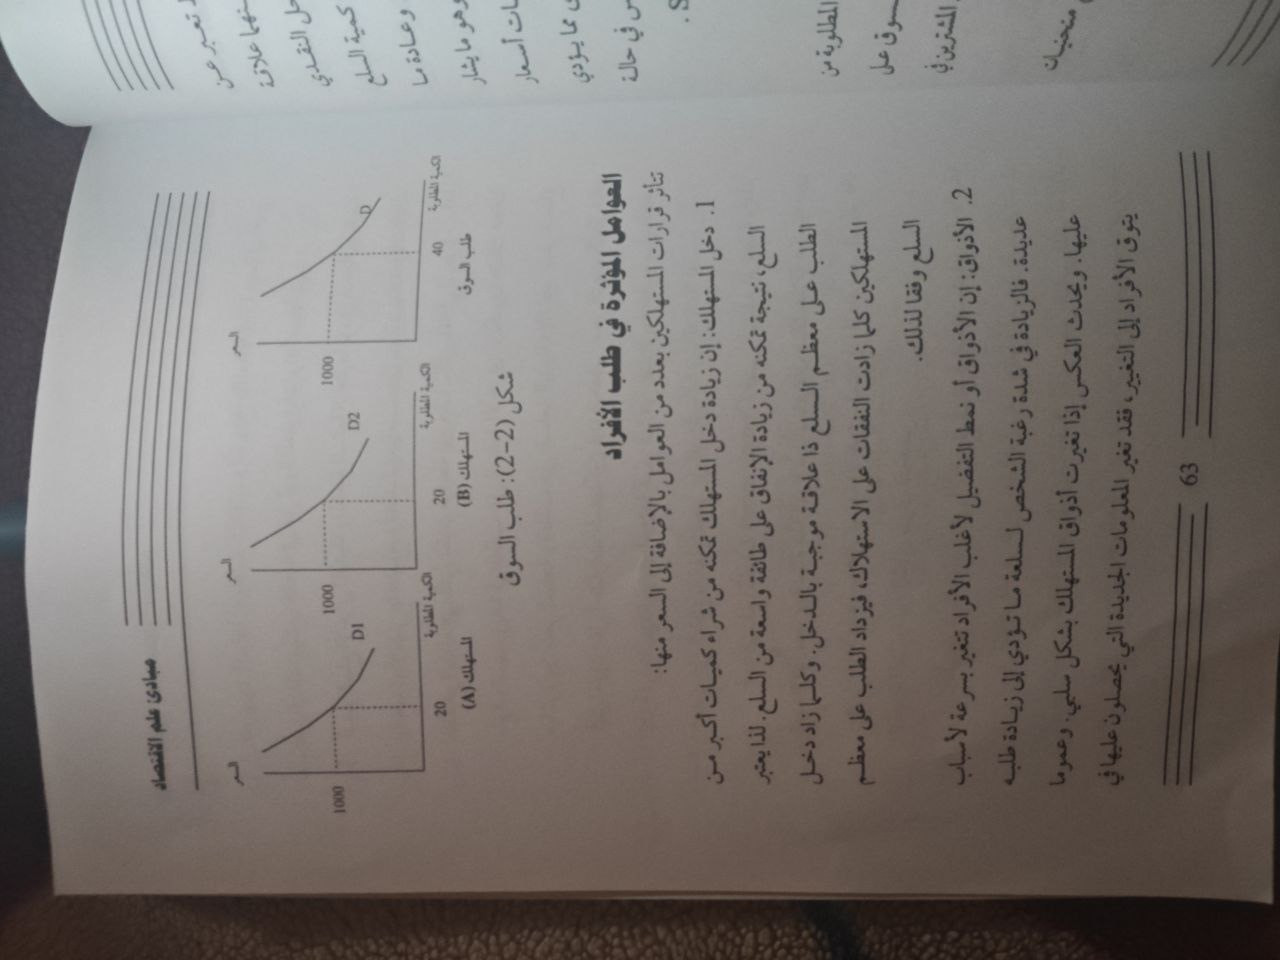 مبادئ علم الاقتصاد
السعر
السعر
السعر
1000
1000
1000
D1
D2
D
الكمية المطلوبة
الكمية المطلوبة
الكمية المطلوبة
20
20
40
المستهلك (A)
المستهلك (B)
طلب السوق
شكل (2-2): طلب السوق
العوامل المؤثرة في طلب الأفراد
تتأثر قرارات المستهلكين بعدد من العوامل بالإضافة إلى السعر منها:
1. دخل المستهلك: إن زيادة دخل المستهلك تمكنه من شراء كميات أكبر من
السلع، نتيجة تمكنه من زيادة الإنفاق على طائفة واسعة من السلع. لذا يعتبر
الطلب على معظم السلع ذا علاقة موجبة بالدخل. وكلما زاد دخل
المستهلكين كلما زادت النفقات على الاستهلاك، فيزداد الطلب على معظم
السلع وفقا لذلك.
2. الأذواق: إن الأذواق أو نمط التفضيل لأغلب الأفراد تتغير بسرعة لأسباب
عديدة. فالزيادة في شدة رغبة الشخص لسلعة ما تؤدي إلى زيادة طلبه
عليها. ويحدث العكس إذا تغيرت أذواق المستهلك بشكل سلبي. وعموما
يتوق الأفراد إلى التغيير، فقد تغير المعلومات الجديدة التي يحصلون عليها في
63
تعبر عن
علاقة
النقدي
كمية السلع
وعادة ما
وهو ما يشار
أسعار
مما يؤدي
في حالة
المطلوبة من
المشترين في
منحنيات